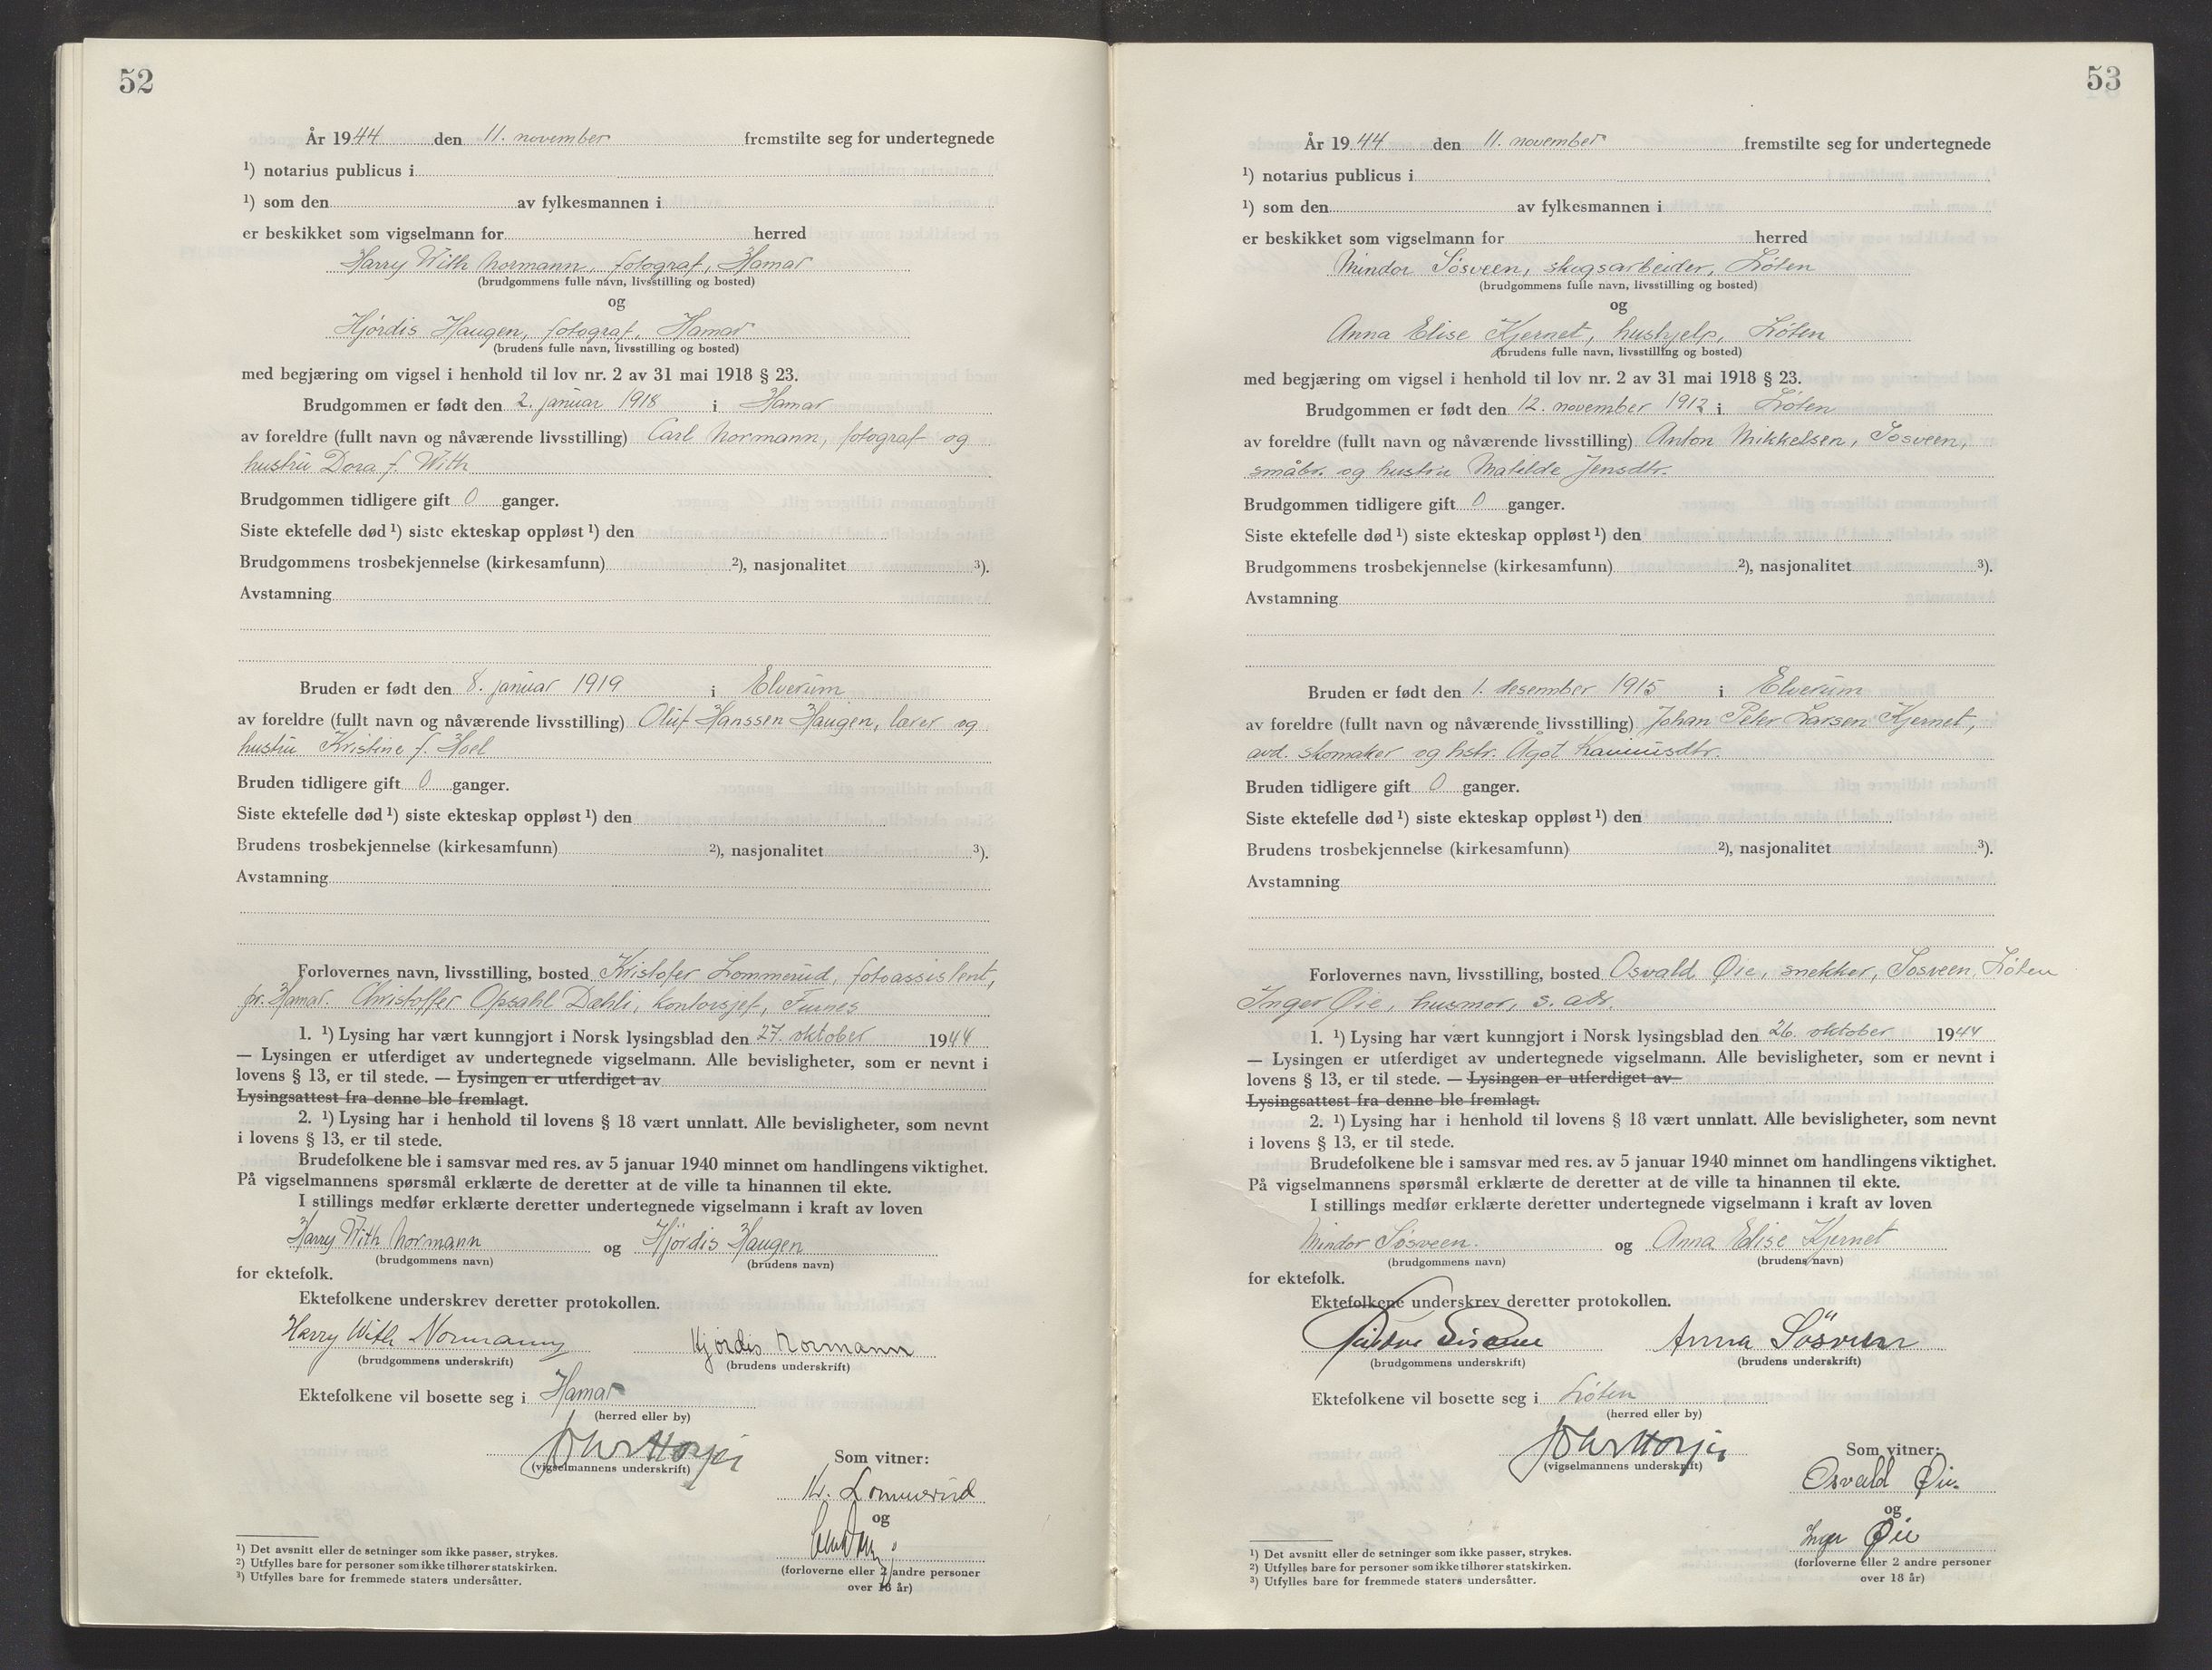 52
År 1944 den 11. november fremstilte seg for undertegnede
¹) notarius publicus i
¹) som den av fylkesmannen i
er beskikket som vigselmann for herred
Harry With Normann, fotograf, Hamar
(brudgommens fulle navn, livsstilling og bosted)
og
Hjördis Haugen, fotograf, Hamar
(brudens fulle navn, livsstilling og bosted)
med begjæring om vigsel i henhold til lov nr. 2 av 31 mai 1918 § 23.
Brudgommen er født den 2. januar 1918 i Hamar
av foreldre (fullt navn og nåværende livsstilling) Carl Normann, fotograf og
hustru Dora f. With
Brudgommen tidligere gift 0 ganger.
Siste ektefelle død ¹) siste ekteskap oppløst ¹) den
Brudgommens trosbekjennelse (kirkesamfunn) ²), nasjonalitet ³).
Avstamning
Bruden er født den 8. januar 1919 i Elverum
av foreldre (fullt navn og nåværende livsstilling) Oluf Hanssen Haugen, lærer og
hustru Kristine f. Hoel
Bruden tidligere gift 0 ganger.
Siste ektefelle død ¹) siste ekteskap oppløst ¹) den
Brudens trosbekjennelse (kirkesamfunn) ²), nasjonalitet ³).
Avstamning
Forlovernes navn, livsstilling, bosted Kristofer Lommerud, fotoassistent,
pr. Hamar. Christoffer Opsahl Dæhli, kontorsjef, Furnes
1. ¹) Lysing har vært kunngjort i Norsk lysingsblad den 27. oktober 1944
— Lysingen er utferdiget av undertegnede vigselmann. Alle bevisligheter, som er nevnt i
lovens § 13, er til stede. — Lysingen er utferdiget av
Lysingsattest fra denne ble fremlagt.
2. ¹) Lysing har i henhold til lovens § 18 vært unnlatt. Alle bevisligheter, som nevnt
i lovens § 13, er til stede.
Brudefolkene ble i samsvar med res. av 5 januar 1940 minnet om handlingens viktighet.
På vigselmannens spørsmål erklærte de deretter at de ville ta hinannen til ekte.
I stillings medfør erklærte deretter undertegnede vigselmann i kraft av loven
Harry With Normann og Hjördis Haugen
(brudgommens navn) (brudens navn)
for ektefolk.
Ektefolkene underskrev deretter protokollen.
Harry With Normann Hjördis Normann
(brudgommens underskrift) (brudens underskrift)
Ektefolkene vil bosette seg i Hamar
(herred eller by)
(vigselmannens underskrift)
Som vitner:
Kr. Lommerud
og
(forloverne eller 2 andre personer
over 18 år)
¹) Det avsnitt eller de setninger som ikke passer, strykes.
²) Utfylles bare for personer som ikke tilhører statskirken.
³) Utfylles bare for fremmede staters undersåtter.
53
År 1944 den 11. november fremstilte seg for undertegnede
¹) notarius publicus i
¹) som den av fylkesmannen i
er beskikket som vigselmann for herred
Mindor Sösveen, skogsarbeider, Löten
(brudgommens fulle navn, livsstilling og bosted)
og
Anna Elise Kjernet, hushjelp, Löten
(brudens fulle navn, livsstilling og bosted)
med begjæring om vigsel i henhold til lov nr. 2 av 31 mai 1918 § 23.
Brudgommen er født den 12. november 1912 i Löten
av foreldre (fullt navn og nåværende livsstilling) Anton Mikkelsen, Sösveen,
småbr. og hustru Matilde Jensdtr.
Brudgommen tidligere gift 0 ganger.
Siste ektefelle død ¹) siste ekteskap oppløst ¹) den
Brudgommens trosbekjennelse (kirkesamfunn) ²), nasjonalitet ³).
Avstamning
Bruden er født den 1. desember 1915 i Elverum
av foreldre (fullt navn og nåværende livsstilling) Johan Peter Larsen Kjernet,
avd. skomaker og hstr. Ågot
Bruden tidligere gift 0 ganger.
Siste ektefelle død ¹) siste ekteskap oppløst ¹) den
Brudens trosbekjennelse (kirkesamfunn) ²), nasjonalitet ³).
Avstamning
Forlovernes navn, livsstilling, bosted Osvald Øie, snekker, Sosveen, Löten
Inger Øie, husmor, s. adr.
1. ¹) Lysing har vært kunngjort i Norsk lysingsblad den 26. oktober 1944
— Lysingen er utferdiget av undertegnede vigselmann. Alle bevisligheter, som er nevnt i
lovens § 13, er til stede. — Lysingen er utferdiget av
Lysingsattest fra denne ble fremlagt.
2. ¹) Lysing har i henhold til lovens § 18 vært unnlatt. Alle bevisligheter, som nevnt
i lovens § 13, er til stede.
Brudefolkene ble i samsvar med res. av 5 januar 1940 minnet om handlingens viktighet.
På vigselmannens spørsmål erklærte de deretter at de ville ta hinannen til ekte.
I stillings medfør erklærte deretter undertegnede vigselmann i kraft av loven
Mindor Sösveen. og Anna Elise Kjernet
(brudgommens navn) (brudens navn)
for ektefolk.
Ektefolkene underskrev deretter protokollen.
Anna Sösveen
(brudgommens underskrift) (brudens underskrift)
Ektefolkene vil bosette seg i Löten
(herred eller by)
(vigselmannens underskrift)
Som vitner:
Osvald Øie.
og
Inger Øie
(forloverne eller 2 andre personer
over 18 år)
¹) Det avsnitt eller de setninger som ikke passer, strykes.
²) Utfylles bare for personer som ikke tilhører statskirken.
³) Utfylles bare for fremmede staters undersåtter.